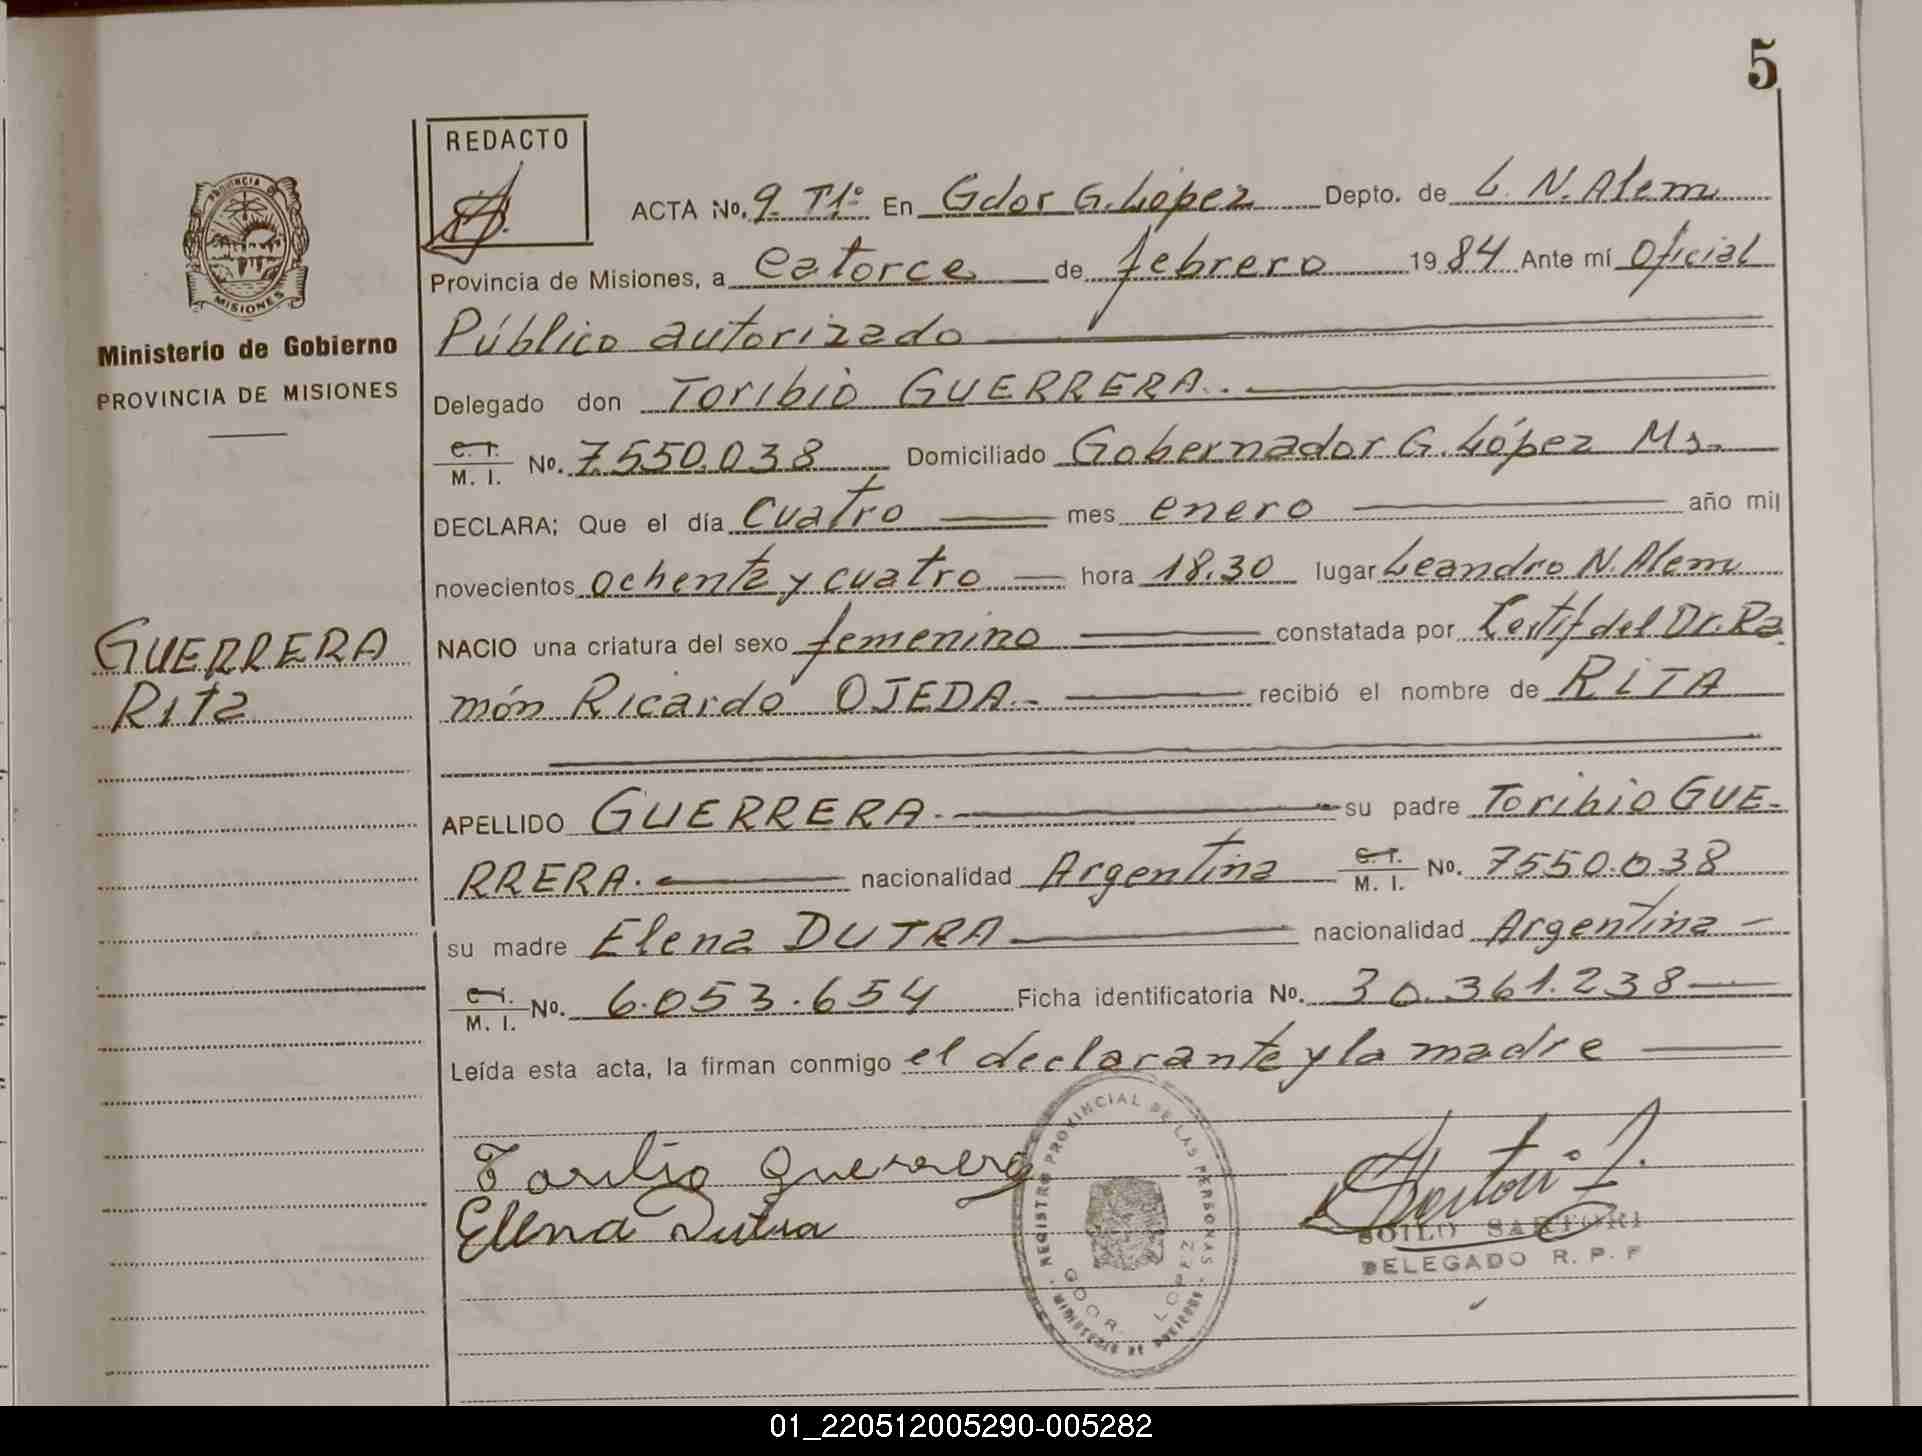 5
REDACTO
ACTA No. 9 T1º En Gdor G. López Depto. de L. N. Alem
PROVINCIA DE MISIONES
Provincia de Misiones, a catorce de febrero 1984 Ante mí Oficial
Ministerio de Gobierno
PROVINCIA DE MISIONES
Público autorizado
Delegado don Toribio GUERRERA.
C. I. M. I. No. 7.550.038 Domiciliado Gobernador G. López Ms.
DECLARA; Que el día cuatro mes enero año mil
novecientos ochenta y cuatro hora 18.30 lugar Leandro N. Alem
GUERRERA
Rita
NACIO una criatura del sexo femenino constatada por Certif del Dr. Ra
món Ricardo OJEDA.- recibió el nombre de RITA
APELLIDO GUERRERA. su padre Toribio GUE-
RRERA. nacionalidad Argentina C. I. M. I. No. 7550.038
su madre Elena DUTRA nacionalidad Argentina
C. I. M. I. No. 6.053.654 Ficha identificatoria No. 30.361.238
Leída esta acta, la firman conmigo el declarante y la madre
Toribio Guerrera
Elena Dutra
REGISTRO PROVINCIAL DE LAS PERSONAS
GDOR. LOPEZ
MINISTERIO DE GOBIERNO
SOILO SARTORI
DELEGADO R. P. P
01_220512005290-005282